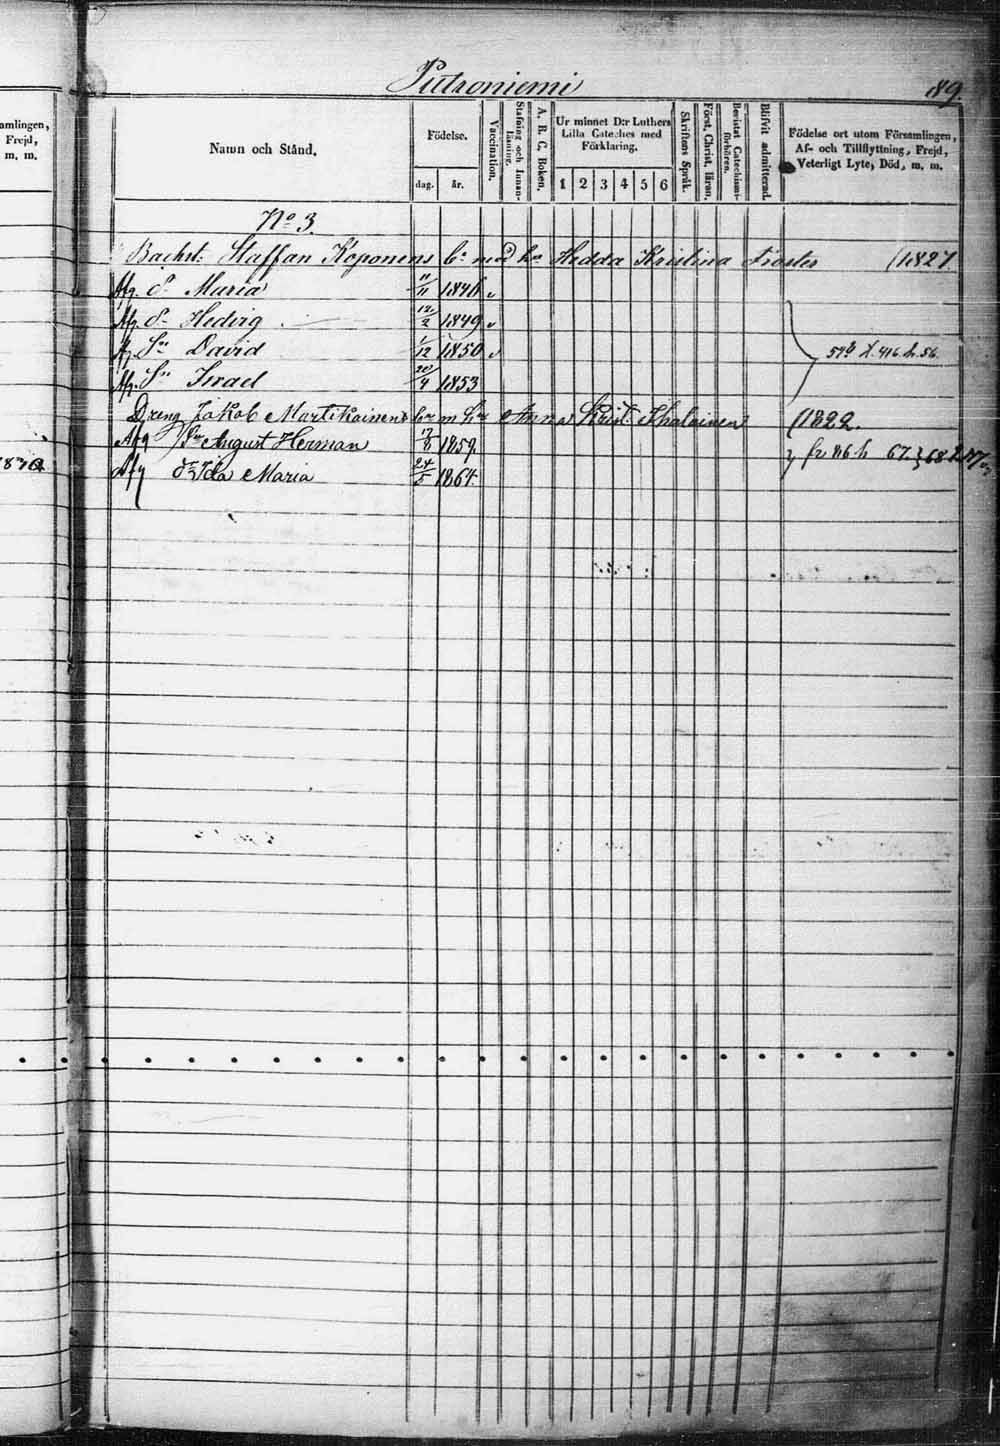 amlingen,
Frejd,
m. m.
1870
Putroniemi
89.
Namn och Stånd.
Födelse.
dag. år.
Vaccination.
Stafning och Innan-läsning.
A. B. C. Boken.
Ur minnet D:r Luthers
Lilla Cateches med
Förklaring.
1 2 3 4 5 6
Skriftens Språk.
Först. Christ. läran.
Bevistat Catechismi-förhören.
Blifvit admitterad.
Födelse ort utom Församlingen,
Af- och Tillflyttning, Frejd,
Veterligt Lyte, Död, m. m.
No 3.
Backst: Staffan Koponens br med ha Hedda Kristina Froster (1827
Afg. dr Maria 11/11 1846 v
Afg dr Hedvig 12/2 1849 v
Afg. Sn David 1/12 1850 v
Afg. Sn Israel 20/4 1853
Dreng Jakob Martikainens br m ha Anna Krist. (1822.
Afg Sn August Herman 17/8 1859.
fr 86 h 67.
Afg dr Ida Maria 24/5 1864.